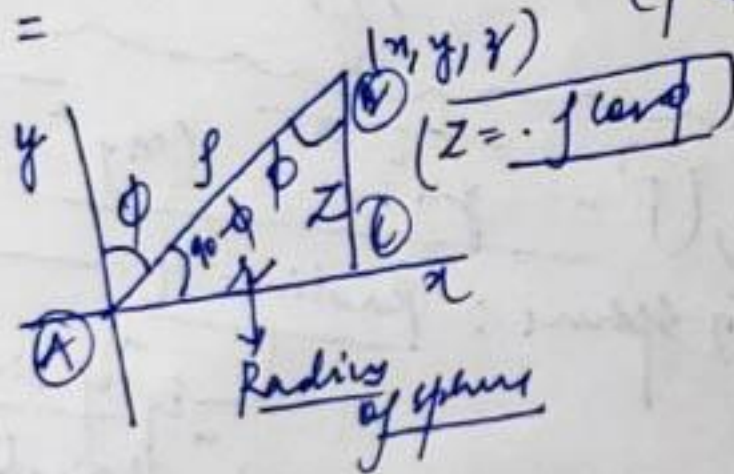 =
(x, y, z)
y
ϕ
ρ
ϕ
B
(Z = . ρ cosϕ)
90-ϕ
Z
C
r
x
A
Radius
of sphere